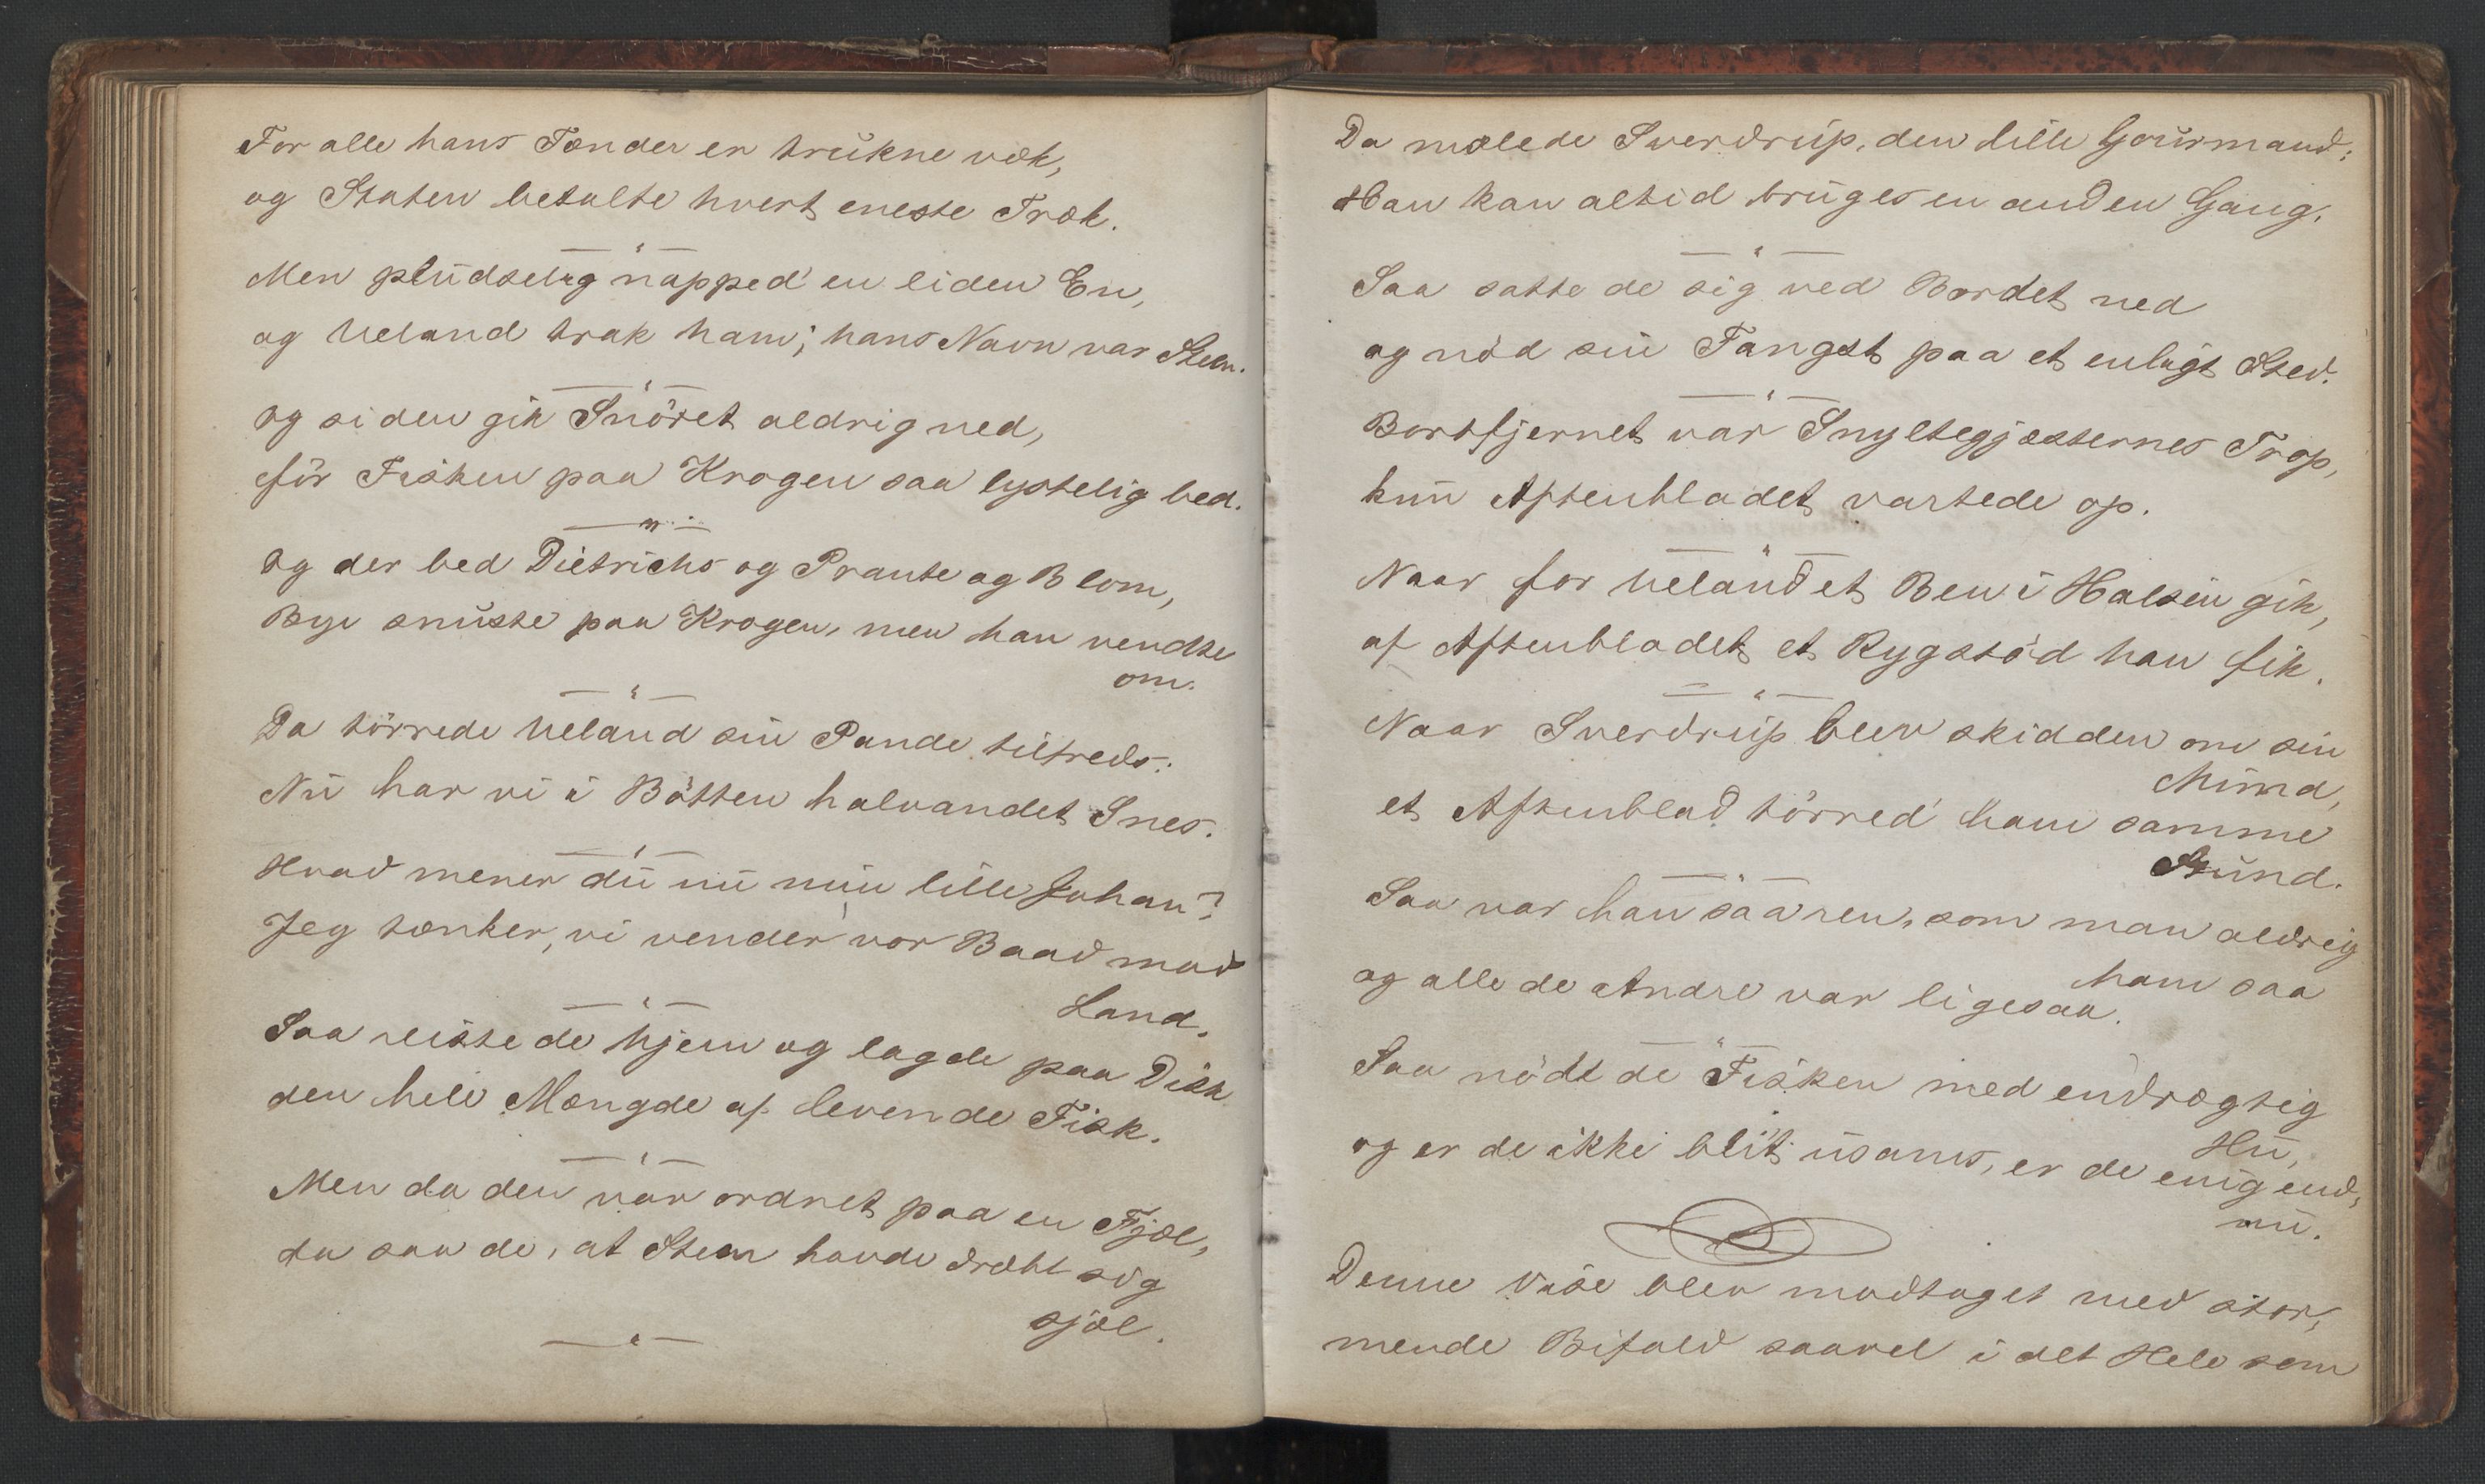 For alle hans Tænder er trukne væk,
og Staten betalte hvert eneste Træk.
Men pludselig napped' en liden En,
og Ueland trak ham; hans Navn var Steen.
Og siden gik Snöret aldrig ned,
för Fisken paa Krogen saa lystelig bed.
Og der bed Dietrichs og Prante og Blom,
Bye snuste paa Krogen, men han vendte
om.
Da törrede Ueland sin Pande tilfreds:
Nu har vi i Bötten halvandet Snes.
Hvad mener du nu min lille Johan?
Jeg tænker, vi vender vor Baad mod
Land.
Saa reiste de hjem og lagde paa Disk
den hele Mængde af levende Fisk.
Men da den var ordnet paa en Fjæl,
da saa de, at Steen havde dræbt sig
sjæl.
Da mælede Sverdrup, den lille Gourmand:
Han kan altid bruges en anden Gang.
Saa satte de sig ved Bordet ned
og nöd sin Fangst paa et enligt Sted.
Bortfjernet var Snyltegjæsternes Trop,
kun Aftenbladet vartede op.
Naar for Ueland et Ben i Halsen gik,
af Aftenbladet et Rygstöd han fik.
Naar Sverdrup blev skidden om sin
Mund,
et Aftenblad törred' ham samme
Stund.
Saa var han saa ren, som man aldrig
ham saa
og alle de Andre var ligesaa.
Saa nödt de Fisken med endrægtig
Hu,
og er de ikke blit usams, er de enig end,
nu.
Denne Vise blev modtaget med stor,
mende Bifald saavel i det Hele som